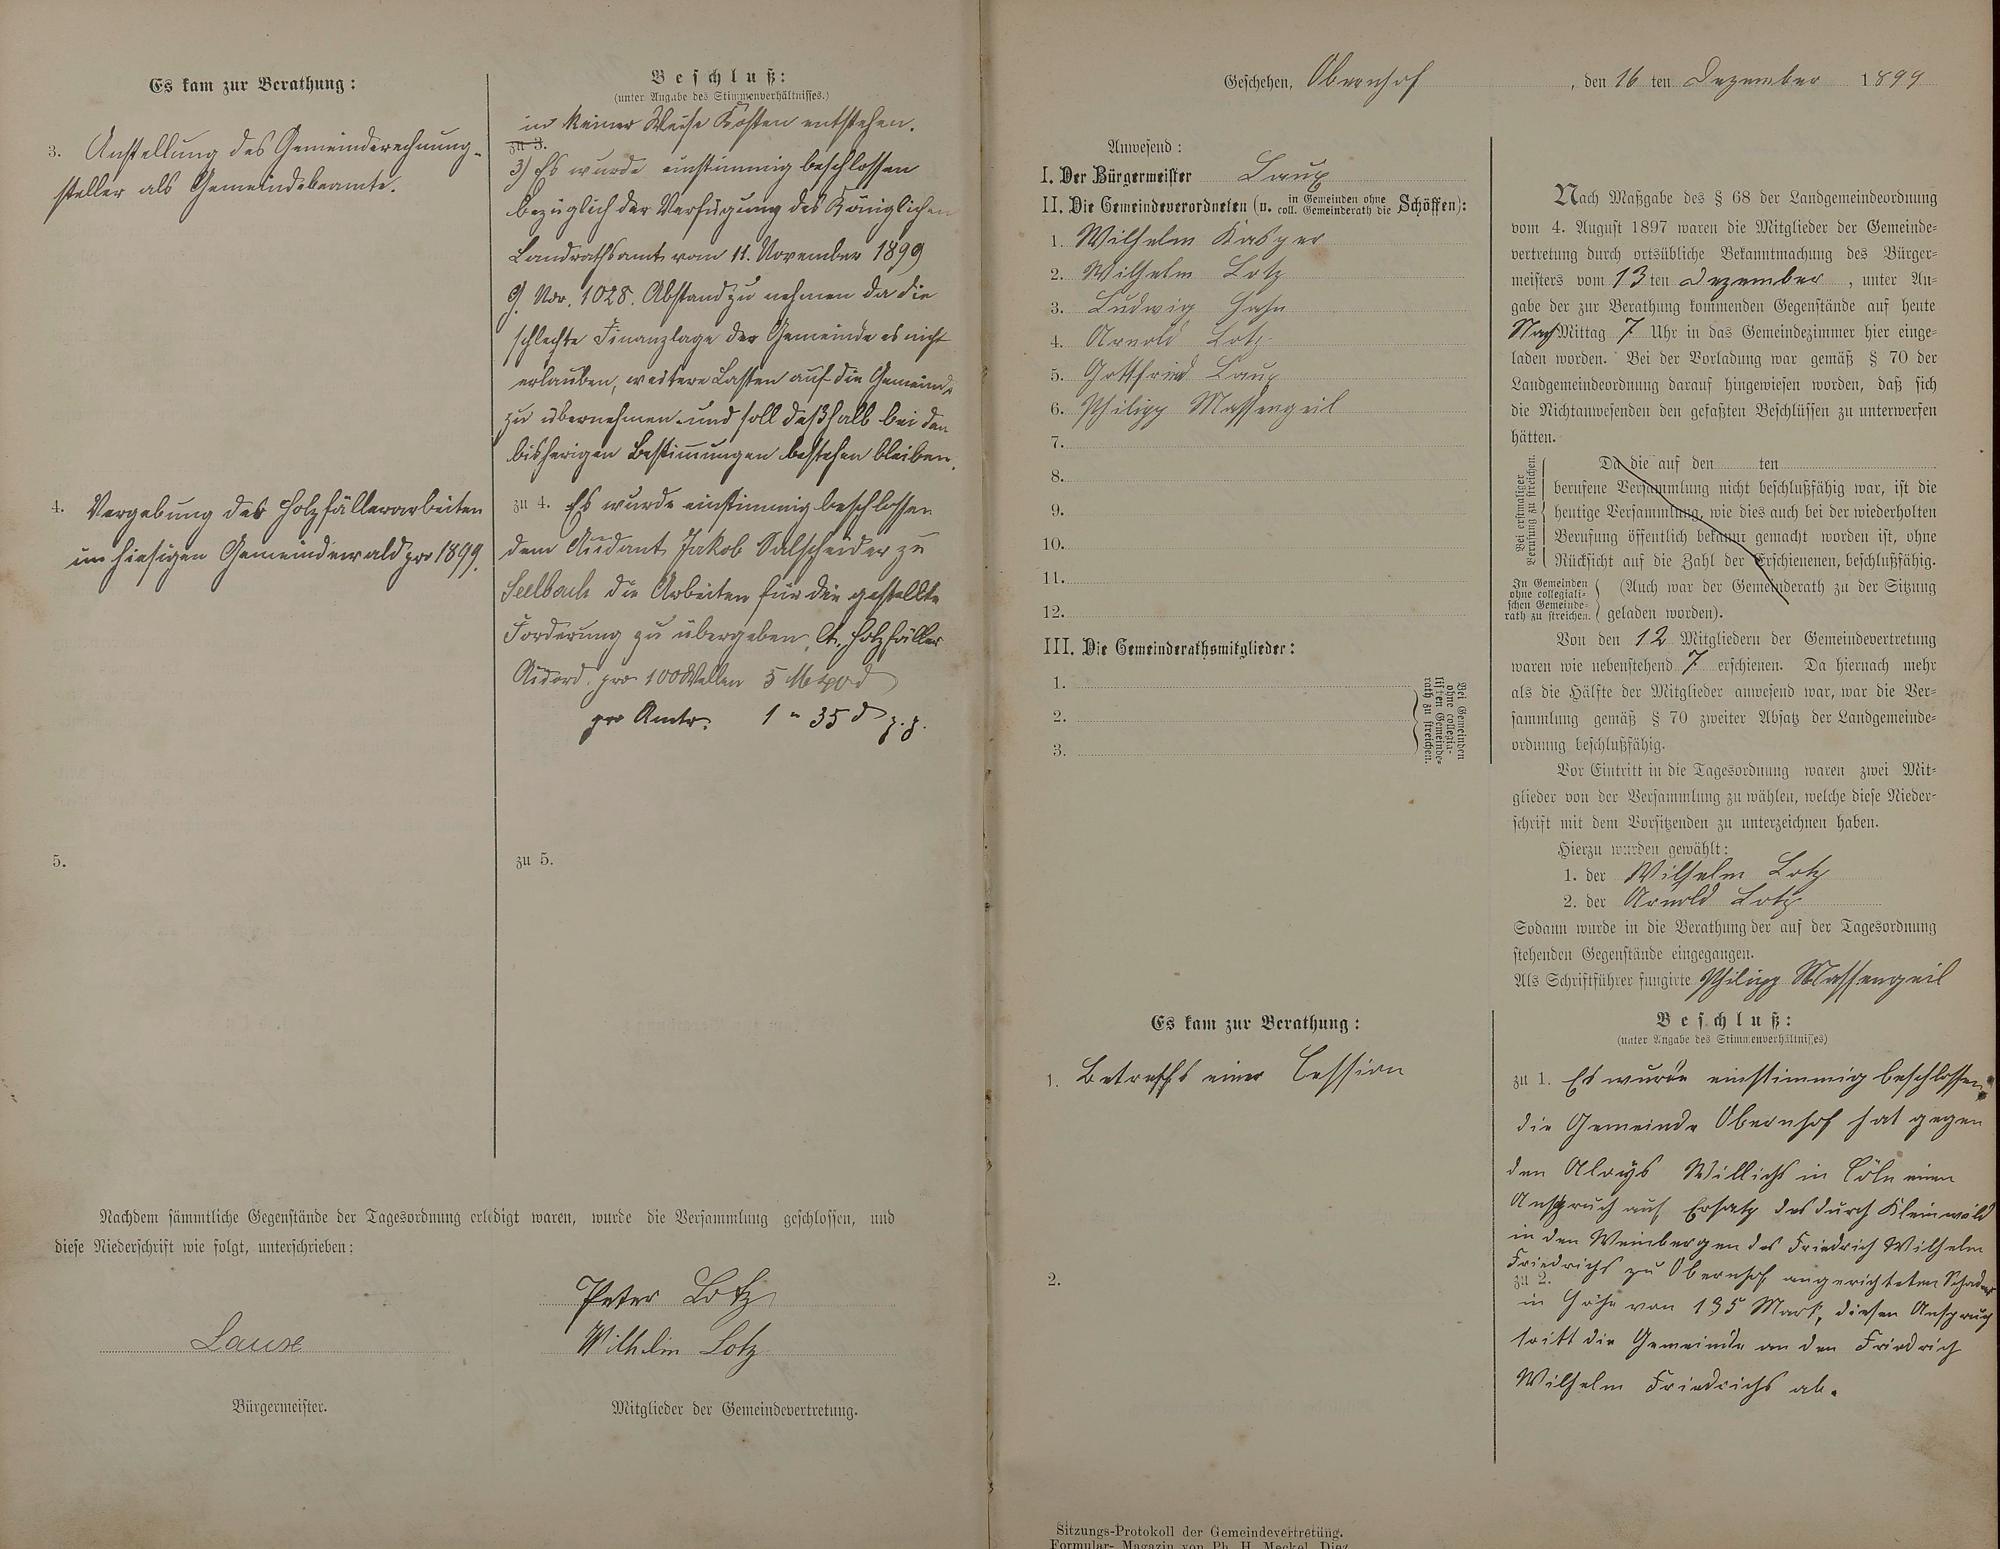 Es kam zur Berathung:
3. Anstellung des Gemeinderechnung-
steller als Gemeindebeamte.
4. Vergebung des Holzfällerarbeiten
im hiesigen Gemeindewald pro 1899.
5.
Beschluß:
(unter Angabe des Stimmenverhältnisses.)
in keiner Weise Kosten entstehen.
zu 3.
3) Es wurde einstimmig beschlossen
bezüglich der Verfügung des Königlichen
Landrathsamt vom 11. November 1899
J. Nor. 1028. Abstand zu nehmen da die
schlechte Finanzlage der Gemeinde es nicht
erlauben, weitere Lasten auf die Gemeinde
zu übernehmen und soll deßhalb bei den
bisherigen Bestimmungen bestehen bleiben.
zu 4. Es wurde einstimmig beschlossen
dem Jakob Salscheider zu
Seelbach die Arbeiten für die gestellte
Forderung zu übergeben, Holzfäller
pro 100 Wellen 5 M
pro 1 " 35 d
zu 5.
Nachdem sämmtliche Gegenstände der Tagesordnung erledigt waren, wurde die Versammlung geschlossen, und
diese Niederschrift wie folgt, unterschrieben:
Peter Lotz
Laux
Wilhelm Lotz
Bürgermeister.
Mitglieder der Gemeindevertretung.
Geschehen, Obernhof, den 16 ten Dezember 1899
Anwesend:
I. Der Bürgermeister Laux
II. Die Gemeindeverordneten (u. in Gemeinden ohne coll. Gemeinderath die Schöffen):
1. Wilhelm Kasper
2. Wilhelm Lotz
3. Ludwig Hahn
4. Arnold Lotz
5. Gottfried Laux
6. Philipp Massengeil
7.
8.
9.
10.
11.
12.
III. Die Gemeinderathsmitglieder:
1.
2.
3.
Bei Gemeinden
ohne collegia-
lischen Gemeinde-
rath zu streichen.
Nach Maßgabe des § 68 der Landgemeindeordnung
vom 4. August 1897 waren die Mitglieder der Gemeinde-
vertretung durch ortsübliche Bekanntmachung des Bürger-
meisters vom 13ten Dezember, unter An-
gabe der zur Berathung kommenden Gegenstände auf heute
Nach Mittag 7 Uhr in das Gemeindezimmer hier einge-
laden worden. Bei der Vorladung war gemäß § 70 der
Landgemeindeordnung darauf hingewiesen worden, daß sich
die Nichtanwesenden den gefaßten Beschlüssen zu unterwerfen
hätten.
Bei erstmaliger
Berufung zu streichen.
Da die auf den ten
berufene Versammlung nicht beschlußfähig war, ist die
heutige Versammlung, wie dies auch bei der wiederholten
Berufung öffentlich bekannt gemacht worden ist, ohne
Rücksicht auf die Zahl der Erschienenen, beschlußfähig.
In Gemeinden
ohne collegiali-
schen Gemeinde-
rath zu streichen.
(Auch war der Gemeinderath zu der Sitzung
geladen worden).
Von den 12 Mitgliedern der Gemeindevertretung
waren wie nebenstehend 7 erschienen. Da hiernach mehr
als die Hälfte der Mitglieder anwesend war, war die Ver-
sammlung gemäß § 70 zweiter Absatz der Landgemeinde-
ordnung beschlußfähig.
Vor Eintritt in die Tagesordnung waren zwei Mit-
glieder von der Versammlung zu wählen, welche diese Nieder-
schrift mit dem Vorsitzenden zu unterzeichnen haben.
Hierzu wurden gewählt:
1. der Wilhelm Lotz
2. der Arnold Lotz
Sodann wurde in die Berathung der auf der Tagesordnung
stehenden Gegenstände eingegangen.
Als Schriftführer fungirte Philipp Massengeil
Es kam zur Berathung:
1. Betreffs einer Cession
2.
Beschluß:
(unter Angabe des Stimmenverhältnisses)
zu 1. Es wurde einstimmig beschlossen,
die Gemeinde Obernhof hat gegen
den Aloys Willichs in Cöln einen
Anspruch auf Ersatz des durch Kleinwild
in den Weinbergen des Friedrich Wilhelm
Friedrichs zu Obernhof angerichteten Schaden
zu 2.
in Höhe von 195 Mark, diesen Anspruch
tritt die Gemeinde an den Friedrich
Wilhelm Friedrichs ab.
Sitzungs-Protokoll der Gemeindevertretung.
Formular-Magazin von Ph. H. Meckel, Diez